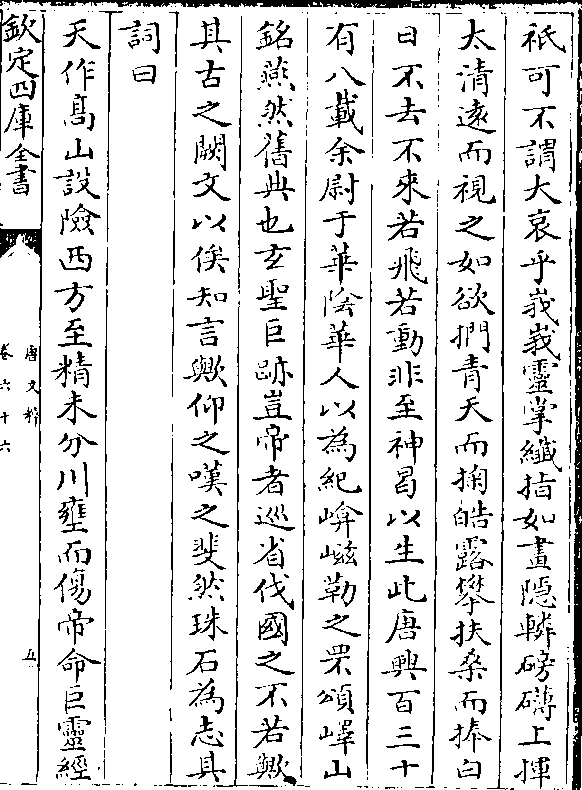 祇可不謂大哀乎峩峩靈掌纎指如畫隠轔磅礴上揮
太清逺而視之如欲捫青天而掬皓露攀扶桑而捧白
日不去不來若飛若動非至神曷以生此唐興百三十
有八載余尉于華隂華人以為紀嶂嶷勒之罘頌嶧山
銘燕然舊典也玄聖巨跡豈帝者巡省伐國之不若歟
其古之闕文以俟知言歟仰之嘆之斐然珠石為志其
詞曰
天作髙山設險西方至精未分川壅而傷帝命巨靈經
欽定四庫全書
唐文粹
卷六十六
五